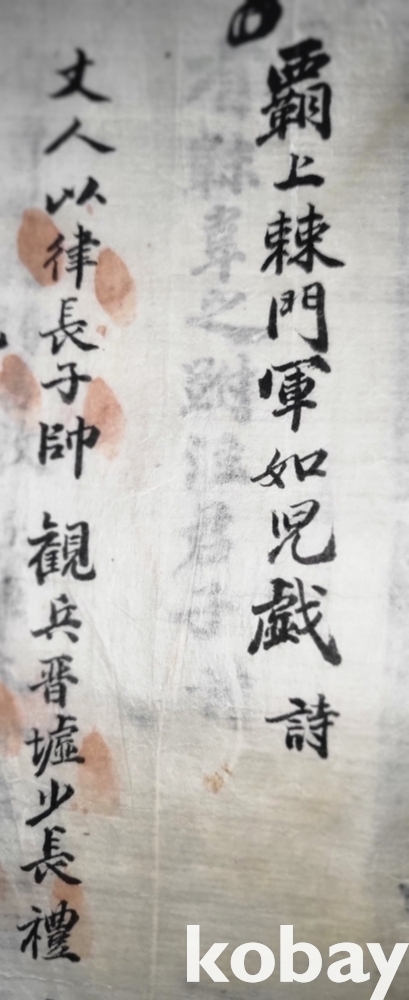 覇上棘門軍如児戯 詩
丈人以律長子帥 観兵晋墟少長禮
kobay